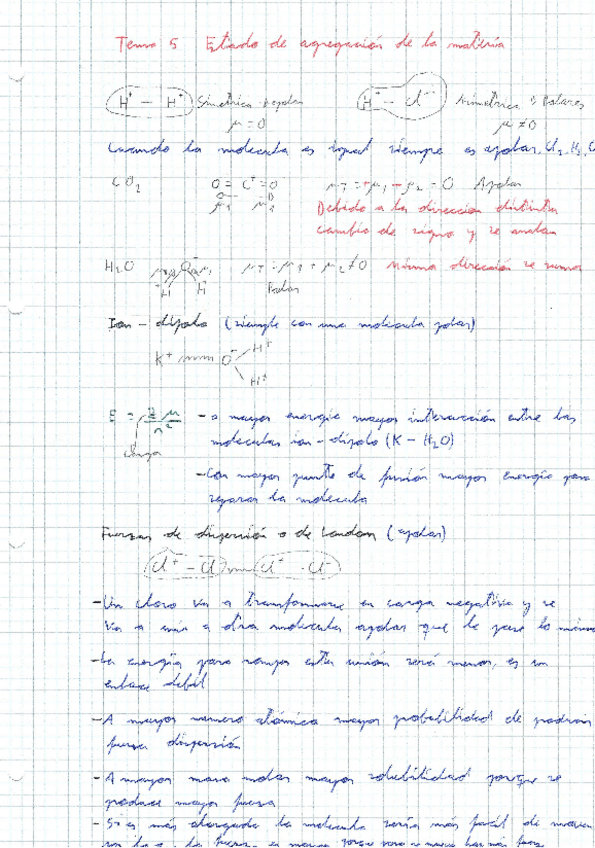 Tema 5 Estado de agregación de la materia
H⁺ — H⁺ Simetrica Apolar H⁺ — Cl⁻ Asimetrica Polares
μ = 0 μ ≠ 0
Cuando la molecula es igual siempre es apolar, Cl₂, H₂,
CO₂ O = C⁺ = O μT = +μ₁ − μ₂ = 0 Apolar
μ₁ μ₂ Debido a la direccion distinta
cambio de signo y se anulan
H₂O μT = μ₁ + μ₂ ≠ 0 misma dirección se suman
H H Polar
Ion - dipolo (siempre con una molecula polar)
K⁺ O⁻ H⁺
H⁺
E = z μ / r² - a mayor energia mayor interacción entre las
moleculas ion - dipolo (K - H₂O)
carga
- Con mayor punto de fusión mayor energia para
separar la molecula
Fuerzas de dispersión o de London (apolar)
Cl⁺ - Cl⁻ Cl⁺ - Cl⁻
- Un cloro va a transformarse en carga negativa y se
va a unir a otra molecula apolar que le pase lo mismo
- La energia para romper esta unión será menor, es un
enlace debil
- A mayor numero atómico mayor probabilidad de
fuerza dispersión
- A mayor masa molar mayor solubilidad porque se
produce mayor fuerza
- Si es más alargada la molecula seria más facil de